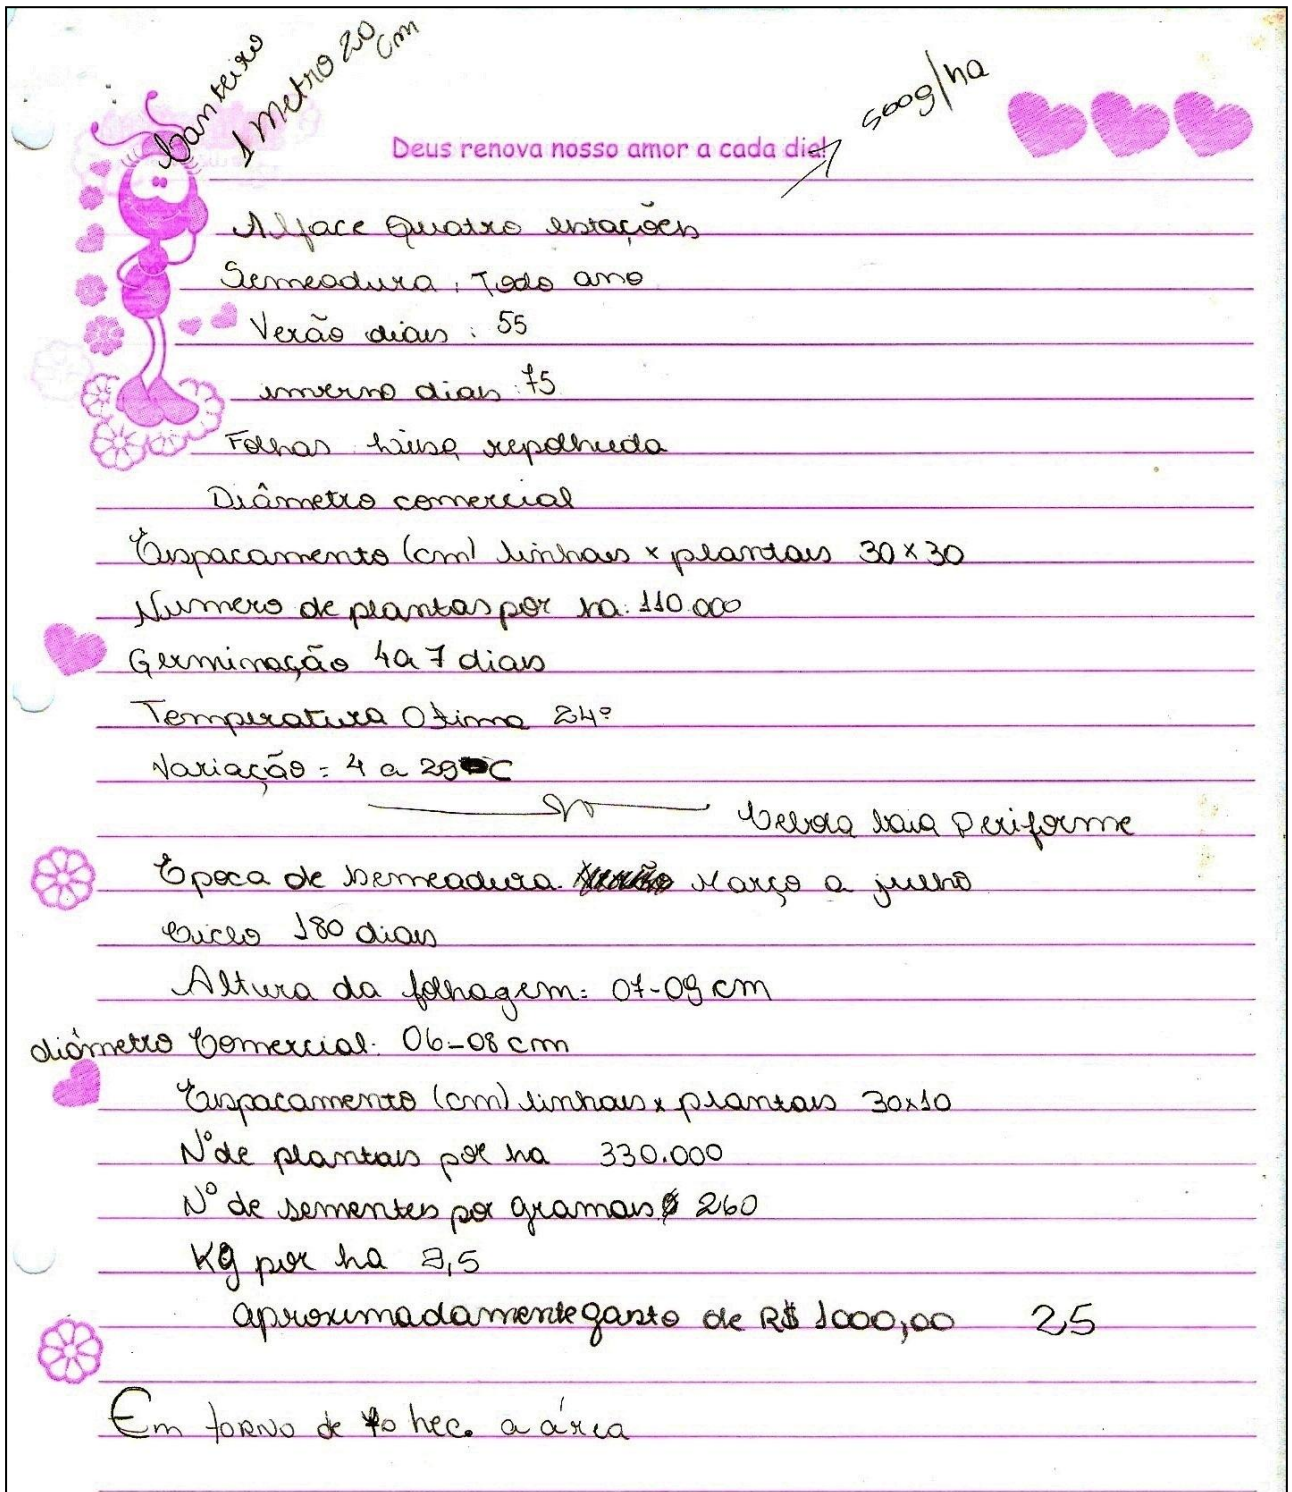 Canteiro
1 metro 20 cm
500g/ha
Deus renova nosso amor a cada dia!
Alface Quatro estações
Semeadura: Todo ano
Verão dias: 55
inverno dias: 75
Folhas lisa, repolhuda
Diâmetro comercial
Espacamento (cm) linhas x plantas 30 x 30
Numero de plantas por ha: 110.000
Germinação 4a 7 dias
Temperatura Otima 24º
Variação = 4 a 29 C
Cebola baia Periforme
Epoca de semeadura. Março a julho
Ciclo 180 dias
Altura da folhagem: 07-09 cm
diâmetro Comercial: 06-08 cm
Espacamento (cm) linhas x plantas 30x10
Nº de plantas por ha 330.000
Nº de sementes por gramas 260
Kg por ha 2,5
aproximadamente gasto de R$ 1000,00 25
Em torno de hec. a área